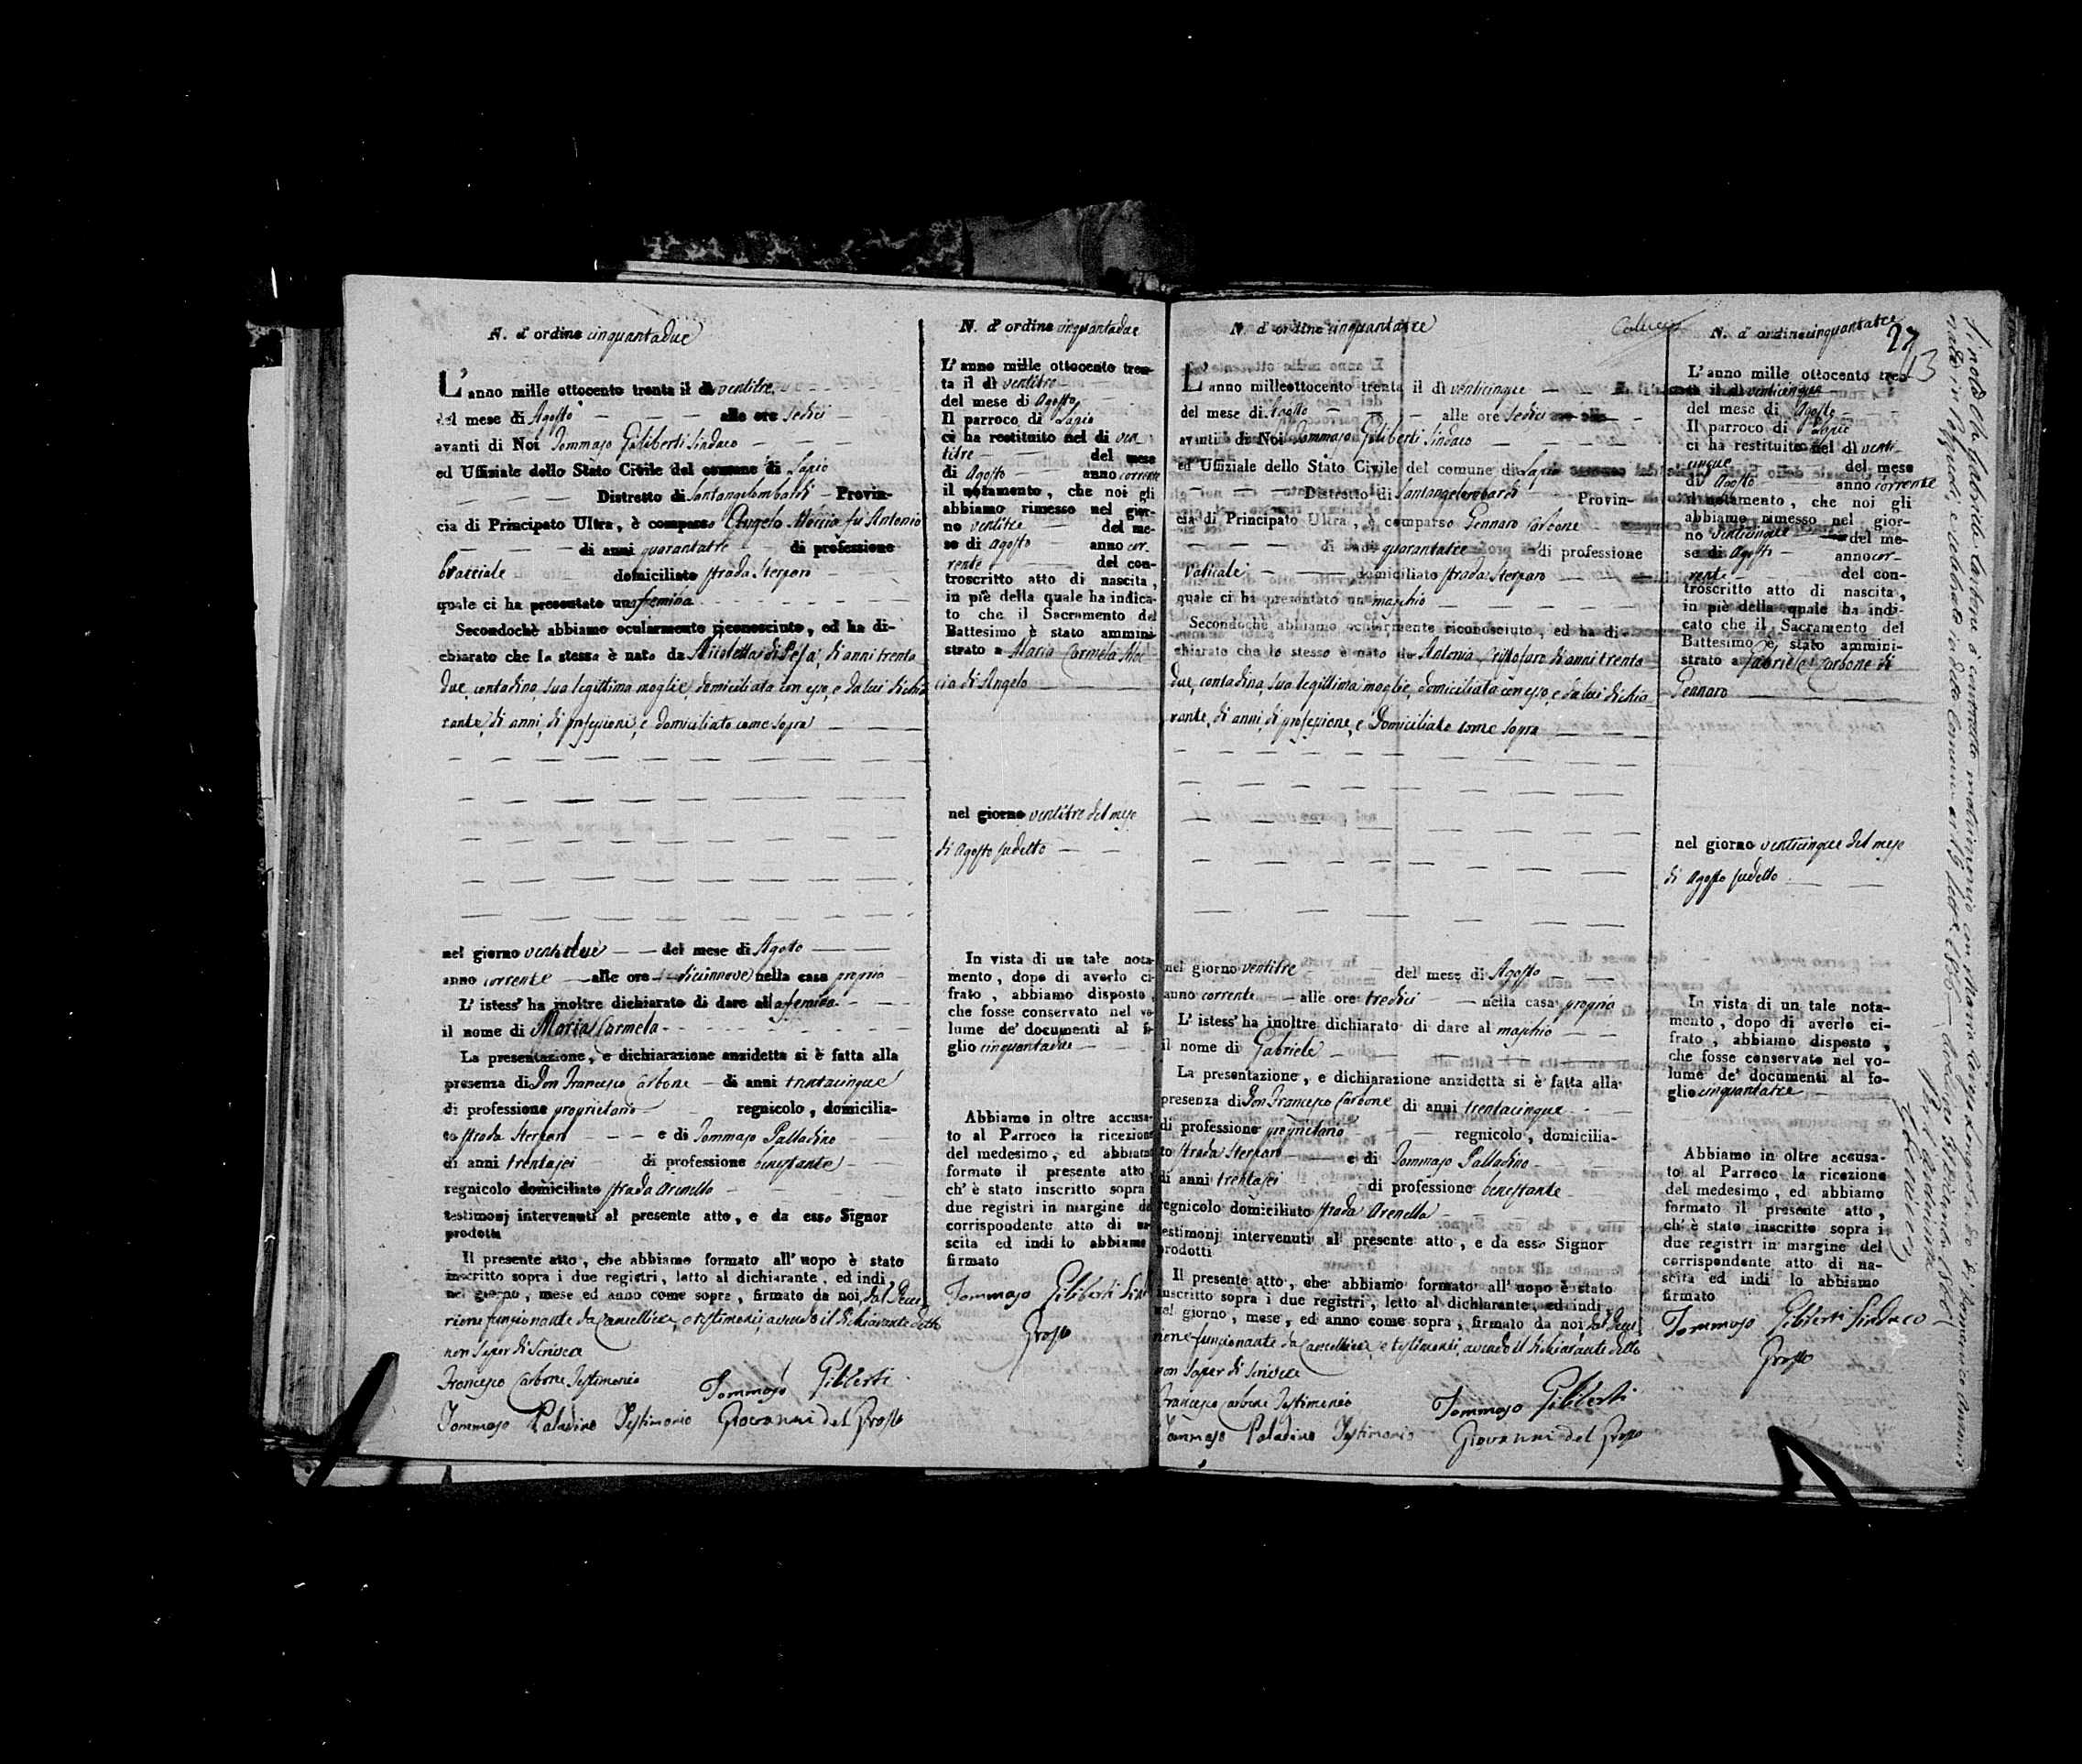 N. d' ordine cinquantadue
L' anno mille ottocento trenta il dì ventitre
del mese di Agosto alle ore sedici
avanti di Noi Tommaso Giliberti Sindaco
ed Uffiziale dello Stato Civile del comune di Lapio
Distretto di Santangelombardi Provin-
cia di Principato Ultra, è comparso Angelo Moccia fu Antonio
di anni quarantatre di professione
bracciale domiciliato strada Sterparo
quale ci ha presentato una femina
Secondochè abbiamo ocularmente riconosciuto, ed ha di-
chiarato che la stessa è nata da Nicoletta di anni trenta
due, contadina sua legittima moglie domiciliata con esso, e da lui dichia
rante, di anni, di professione, e domiciliato come sopra
nel giorno ventidue del mese di Agosto
anno corrente alle ore diciannove nella casa propria
L' istess' ha inoltre dichiarato di dare alla femina
il nome di Maria Carmela
La presentazione, e dichiarazione anzidetta si è fatta alla
presenza di Don Francesco Carbone di anni trentacinque
di professione proprietario regnicolo, domicilia-
to strada Sterparo e di Tommaso Palladino
di anni trentasei di professione benestante
regnicolo domiciliato strada Arenella
testimonj intervenuti al presente atto, e da esso Signor
prodotti
Il presente atto, che abbiamo formato all' uopo è stato
inscritto sopra i due registri, letto al dichiarante, ed indi,
nel giorno, mese ed anno come sopra, firmato da noi, dal Decu
rione funzionante da Cancelliere, e testimonii avendo il dichiarante detto
non saper di scrivere
Francesco Carbone Testimonio
Tommaso Giliberti
Tommaso Paladino Testimonio Giovanni del Grosso
N. d' ordine cinquantadue
L' anno mille ottocento tren-
ta il dì ventitre
del mese di Agosto
Il parroco di Lapio
ci ha restituito nel dì ven
titre del mese
di Agosto anno corrente
il notamento, che noi gli
abbiamo rimesso nel gior-
no ventitre del me-
se di Agosto anno cor-
rente del con-
troscritto atto di nascita,
in piè della quale ha indica-
to che il Sacramento del
Battesimo è stato ammini-
strato a Maria Carmela Moc
cia di Angelo
nel giorno ventitre del mese
di Agosto sudetto
In vista di un tale nota-
mento, dopo di averlo ci-
frato, abbiamo disposto,
che fosse conservato nel vo-
lume de' documenti al fo-
glio cinquantadue
Abbiamo in oltre accusa-
to al Parroco la ricezione
del medesimo, ed abbiamo
formato il presente atto
ch' è stato inscritto sopra i
due registri in margine del
corrispondente atto di na-
scita ed indi lo abbiamo
firmato
Tommaso Giliberti Sin
Grosso
N. d' ordine cinquantatre
L' anno milleottocento trenta il dì venticinque
del mese di Agosto alle ore sedici
avanti di Noi Tommaso Giliberti Sindaco
ed Uffiziale dello Stato Civile del comune di Lapio
Distretto di Santangelombardi Provin-
cia di Principato Ultra, è comparso Gennaro Carbone
di anni quarantatre di professione
Vaticale domiciliato strada Sterparo
quale ci ha presentato un maschio
Secondochè abbiamo ocularmente riconosciuto, ed ha di-
chiarato che lo stesso è nato da Antonia Cristofaro di anni trenta
due, contadina, sua legittima moglie, domiciliata con esso, e da lui dichia
rante, di anni, di professione, e Domiciliato come sopra
nel giorno ventitre del mese di Agosto
anno corrente alle ore tredici nella casa propria
L' istess' ha inoltre dichiarato di dare al maschio
il nome di Gabriele
La presentazione, e dichiarazione anzidetta si è fatta alla
presenza di Don Francesco Carbone di anni trentacinque
di professione proprietario regnicolo, domicilia-
to strada Sterparo e di Tommaso Palladino
di anni trentasei di professione benestante
regnicolo domiciliato strada Arenella
testimonj intervenuti al presente atto, e da esso Signor
prodotti
Il presente atto, che abbiamo formato all' uopo è stato
inscritto sopra i due registri, letto al dichiarante, ed indi,
nel giorno, mese, ed anno come sopra, firmato da noi, dal Decu
rione funzionante da Cancelliere, e testimonii, avendo il dichiarante detto
non saper di scrivere
Francesco Carbone Testimonio
Tommaso Giliberti
Tommaso Paladino Testimonio Giovanni del Grosso
N. d' ordine cinquantatre
27
13
L' anno mille ottocento tren-
ta il dì venticinque
del mese di Agosto
Il parroco di Lapio
ci ha restituito nel dì venti-
cinque del mese
di Agosto anno corrente
il notamento, che noi gli
abbiamo rimesso nel gior-
no venticinque del me-
se di Agosto anno cor-
rente del con-
troscritto atto di nascita,
in piè della quale ha indi-
cato che il Sacramento del
Battesimo è stato ammini-
strato a Gabriele Carbone di
Gennaro
nel giorno venticinque del mese
di Agosto sudetto
In vista di un tale nota-
mento, dopo di averlo ci-
frato, abbiamo disposto,
che fosse conservato nel vo-
lume de' documenti al fo-
glio cinquantatre
Abbiamo in oltre accusa-
to al Parroco la ricezione
del medesimo, ed abbiamo
formato il presente atto,
ch' è stato inscritto sopra i
due registri in margine del
corrispondente atto di na-
scita ed indi lo abbiamo
firmato
Tommaso Giliberti Sindaco
Grosso
Si nota che Gabriele Carbone à contratto matrimonio con Maria di Domenico Antonio